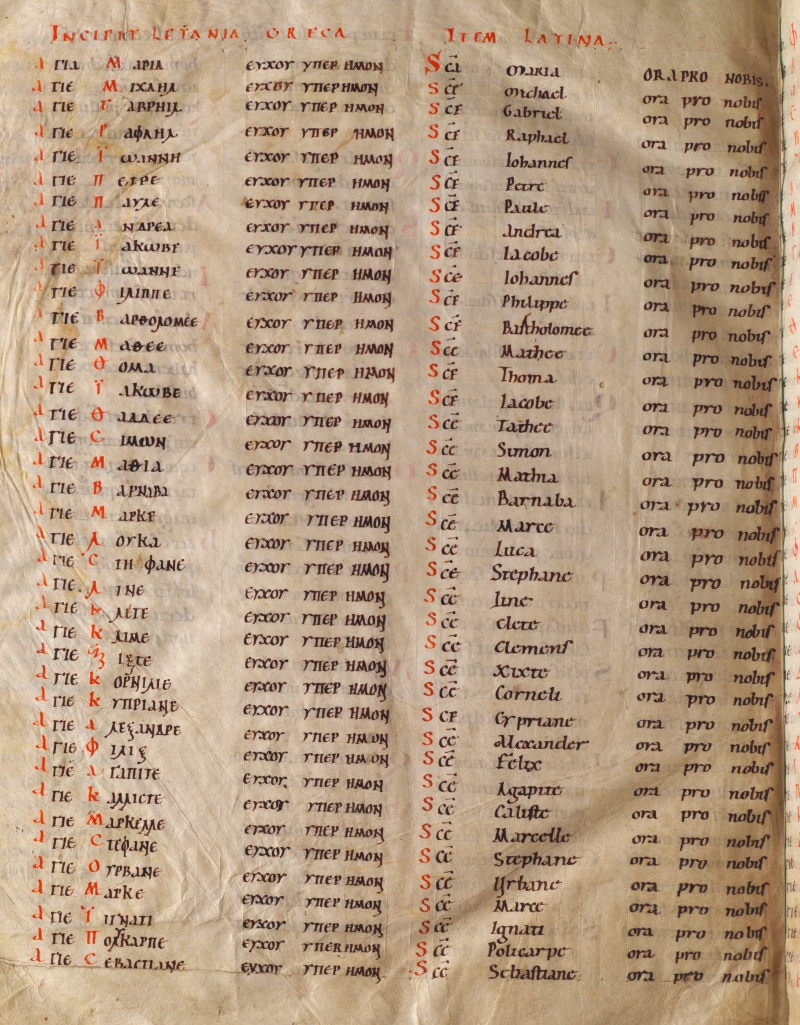 INCIPIT LETANIA GRECA
ΑΓΙΑ ΜΑΡΙΑ ΕΥΧΟΥ ΥΠΕΡ ΗΜΩΝ
ΑΓΙΕ ΜΙΧΑΗΛ ΕΥΧΟΥ ΥΠΕΡ ΗΜΩΝ
ΑΓΙΕ ΓΑΒΡΗΙΛ ΕΥΧΟΥ ΥΠΕΡ ΗΜΩΝ
ΑΓΙΕ ΡΑΦΑΗΛ ΕΥΧΟΥ ΥΠΕΡ ΗΜΩΝ
ΑΓΙΕ ΙΩΑΝΝΗ ΕΥΧΟΥ ΥΠΕΡ ΗΜΩΝ
ΑΓΙΕ ΠΕΤΡΕ ΕΥΧΟΥ ΥΠΕΡ ΗΜΩΝ
ΑΓΙΕ ΠΑΥΛΕ ΕΥΧΟΥ ΥΠΕΡ ΗΜΩΝ
ΑΓΙΕ ΑΝΔΡΕΑ ΕΥΧΟΥ ΥΠΕΡ ΗΜΩΝ
ΑΓΙΕ ΙΑΚΩΒΕ ΕΥΧΟΥ ΥΠΕΡ ΗΜΩΝ
ΑΓΙΕ ΙΩΑΝΝΕ ΕΥΧΟΥ ΥΠΕΡ ΗΜΩΝ
ΑΓΙΕ ΦΙΛΙΠΠΕ ΕΥΧΟΥ ΥΠΕΡ ΗΜΩΝ
ΑΓΙΕ ΒΑΡΘΟΛΟΜΕΕ ΕΥΧΟΥ ΥΠΕΡ ΗΜΩΝ
ΑΓΙΕ ΜΑΘΕΕ ΕΥΧΟΥ ΥΠΕΡ ΗΜΩΝ
ΑΓΙΕ ΘΟΜΑ ΕΥΧΟΥ ΥΠΕΡ ΗΜΩΝ
ΑΓΙΕ ΙΑΚΩΒΕ ΕΥΧΟΥ ΥΠΕΡ ΗΜΩΝ
ΑΓΙΕ ΘΑΔΔΕΕ ΕΥΧΟΥ ΥΠΕΡ ΗΜΩΝ
ΑΓΙΕ CΙΜΩΝ ΕΥΧΟΥ ΥΠΕΡ ΗΜΩΝ
ΑΓΙΕ ΜΑΘΙΑ ΕΥΧΟΥ ΥΠΕΡ ΗΜΩΝ
ΑΓΙΕ ΒΑΡΝΑΒΑ ΕΥΧΟΥ ΥΠΕΡ ΗΜΩΝ
ΑΓΙΕ ΜΑΡΚΕ ΕΥΧΟΥ ΥΠΕΡ ΗΜΩΝ
ΑΓΙΕ ΛΟΥΚΑ ΕΥΧΟΥ ΥΠΕΡ ΗΜΩΝ
ΑΓΙΕ CΤΗΦΑΝΕ ΕΥΧΟΥ ΥΠΕΡ ΗΜΩΝ
ΑΓΙΕ ΛΙΝΕ ΕΥΧΟΥ ΥΠΕΡ ΗΜΩΝ
ΑΓΙΕ ΚΛΕΤΕ ΕΥΧΟΥ ΥΠΕΡ ΗΜΩΝ
ΑΓΙΕ ΚΛΙΜΕ ΕΥΧΟΥ ΥΠΕΡ ΗΜΩΝ
ΑΓΙΕ ΞΙΞΤΕ ΕΥΧΟΥ ΥΠΕΡ ΗΜΩΝ
ΑΓΙΕ ΚΟΡΝΙΛΙΕ ΕΥΧΟΥ ΥΠΕΡ ΗΜΩΝ
ΑΓΙΕ ΚΥΠΡΙΑΝΕ ΕΥΧΟΥ ΥΠΕΡ ΗΜΩΝ
ΑΓΙΕ ΑΛΕΞΑΝΔΡΕ ΕΥΧΟΥ ΥΠΕΡ ΗΜΩΝ
ΑΓΙΕ ΦΙΛΙΞ ΕΥΧΟΥ ΥΠΕΡ ΗΜΩΝ
ΑΓΙΕ ΑΓΑΠΙΤΕ ΕΥΧΟΥ ΥΠΕΡ ΗΜΩΝ
ΑΓΙΕ ΚΑΛΛΙCΤΕ ΕΥΧΟΥ ΥΠΕΡ ΗΜΩΝ
ΑΓΙΕ ΜΑΡΚΕΛΛΕ ΕΥΧΟΥ ΥΠΕΡ ΗΜΩΝ
ΑΓΙΕ CΤΕΦΑΝΕ ΕΥΧΟΥ ΥΠΕΡ ΗΜΩΝ
ΑΓΙΕ ΟΥΡΒΑΝΕ ΕΥΧΟΥ ΥΠΕΡ ΗΜΩΝ
ΑΓΙΕ ΜΑΡΚΕ ΕΥΧΟΥ ΥΠΕΡ ΗΜΩΝ
ΑΓΙΕ ΙΓΝΑΤΙ ΕΥΧΟΥ ΥΠΕΡ ΗΜΩΝ
ΑΓΙΕ ΠΟΛΚΑΡΠΕ ΕΥΧΟΥ ΥΠΕΡ ΗΜΩΝ
ΑΓΙΕ CΕΒΑCΤΙΑΝΕ ΕΥΧΟΥ ΥΠΕΡ ΗΜΩΝ
ITEM LATINA
Sca Maria ORA PRO NOBIS
Sce Michael ora pro nobis
Sce Gabriel ora pro nobis
Sce Raphael ora pro nobis
Sce Iohannes ora pro nobis
Sce Petre ora pro nobis
Sce Paule ora pro nobis
Sce Andrea ora pro nobis
Sce Iacobe ora pro nobis
Sce Iohannes ora pro nobis
Sce Philippe ora pro nobis
Sce Bartholomee ora pro nobis
Sce Mathee ora pro nobis
Sce Thoma ora pro nobis
Sce Iacobe ora pro nobis
Sce Tathee ora pro nobis
Sce Simon ora pro nobis
Sce Mathia ora pro nobis
Sce Barnaba ora pro nobis
Sce Marce ora pro nobis
Sce Luca ora pro nobis
Sce Stephane ora pro nobis
Sce Line ora pro nobis
Sce Clete ora pro nobis
Sce Clemens ora pro nobis
Sce Xixte ora pro nobis
Sce Corneli ora pro nobis
Sce Cypriane ora pro nobis
Sce Alexander ora pro nobis
Sce Felix ora pro nobis
Sce Agapite ora pro nobis
Sce Califte ora pro nobis
Sce Marcelle ora pro nobis
Sce Stephane ora pro nobis
Sce Urbane ora pro nobis
Sce Marce ora pro nobis
Sce Ignati ora pro nobis
Sce Policarpe ora pro nobis
Sce Sebastiane ora pro nobis